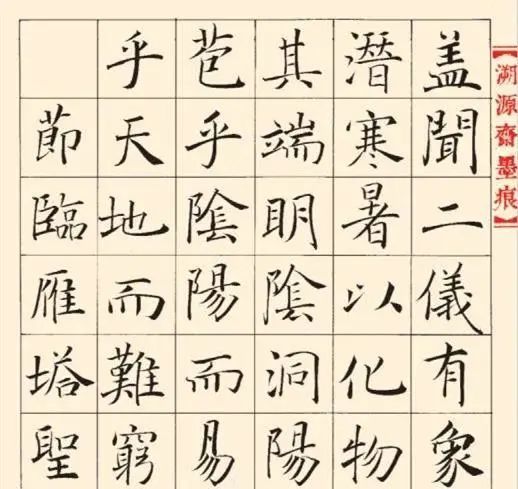 【溯源齋墨痕】
盖聞二儀有象
潛寒暑以化物
其端眀隂洞陽
苞乎隂陽而易
乎天地而難窮
節臨雁塔聖